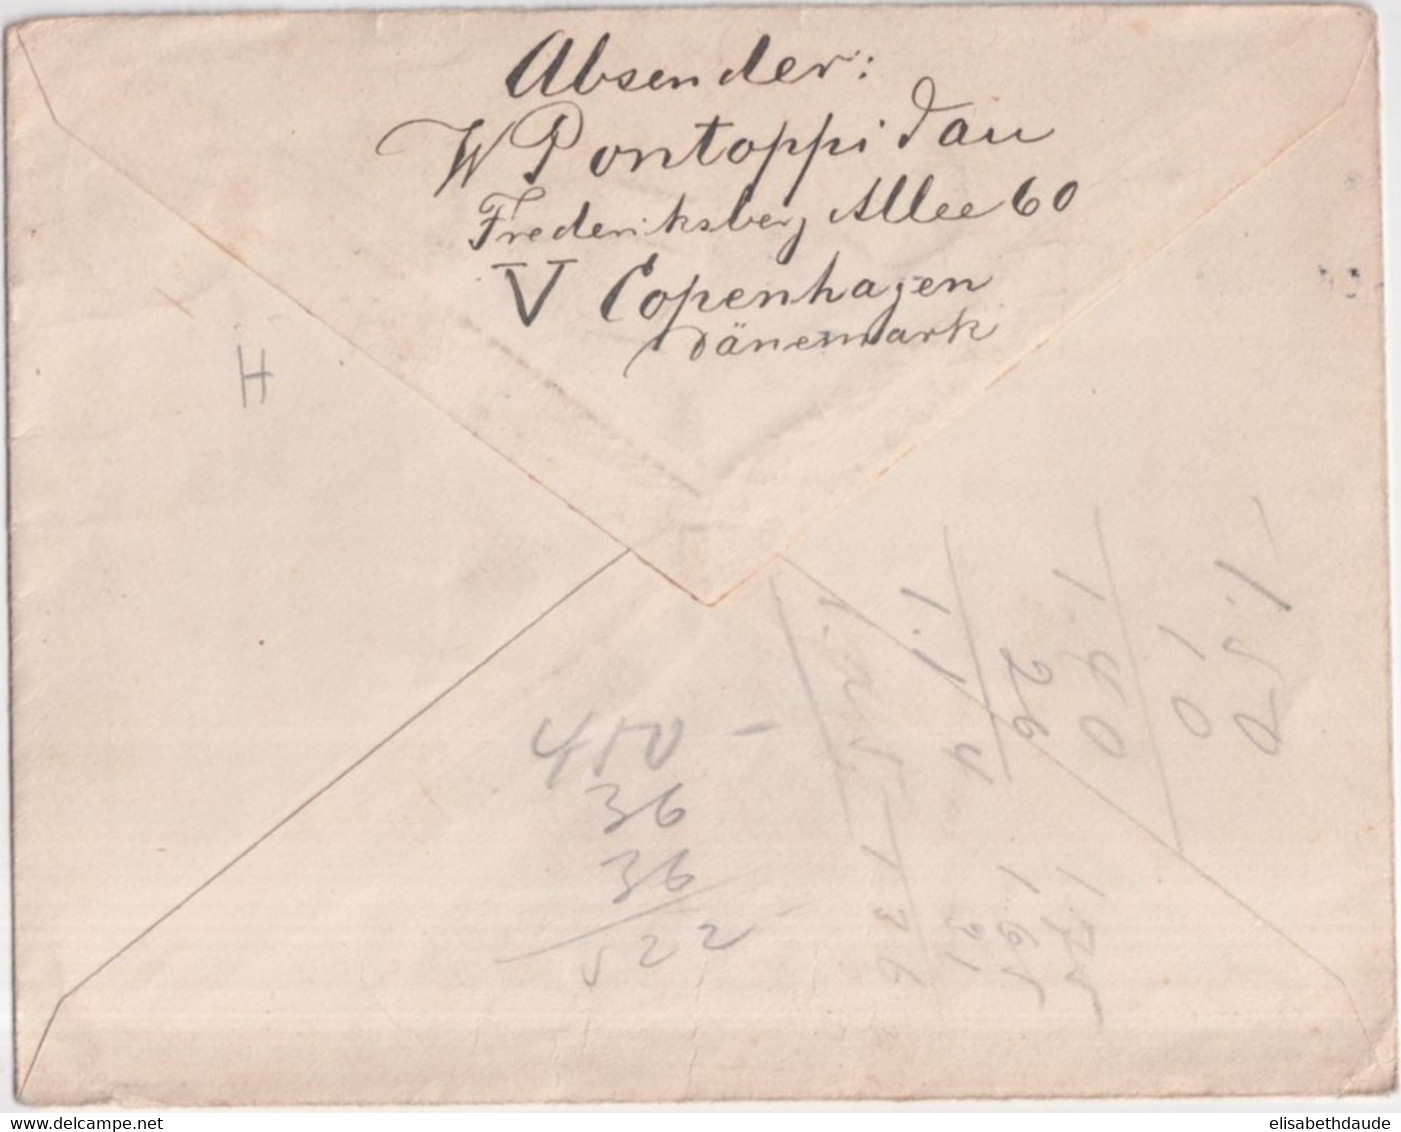 Absender:
W Pontoppidan
Frederiksberg Allee 60
V Copenhagen
Dänemark
H
450 -
36
36
522
1.50
10
1.40
26
1.14
delcampe.net
elisabethdaude